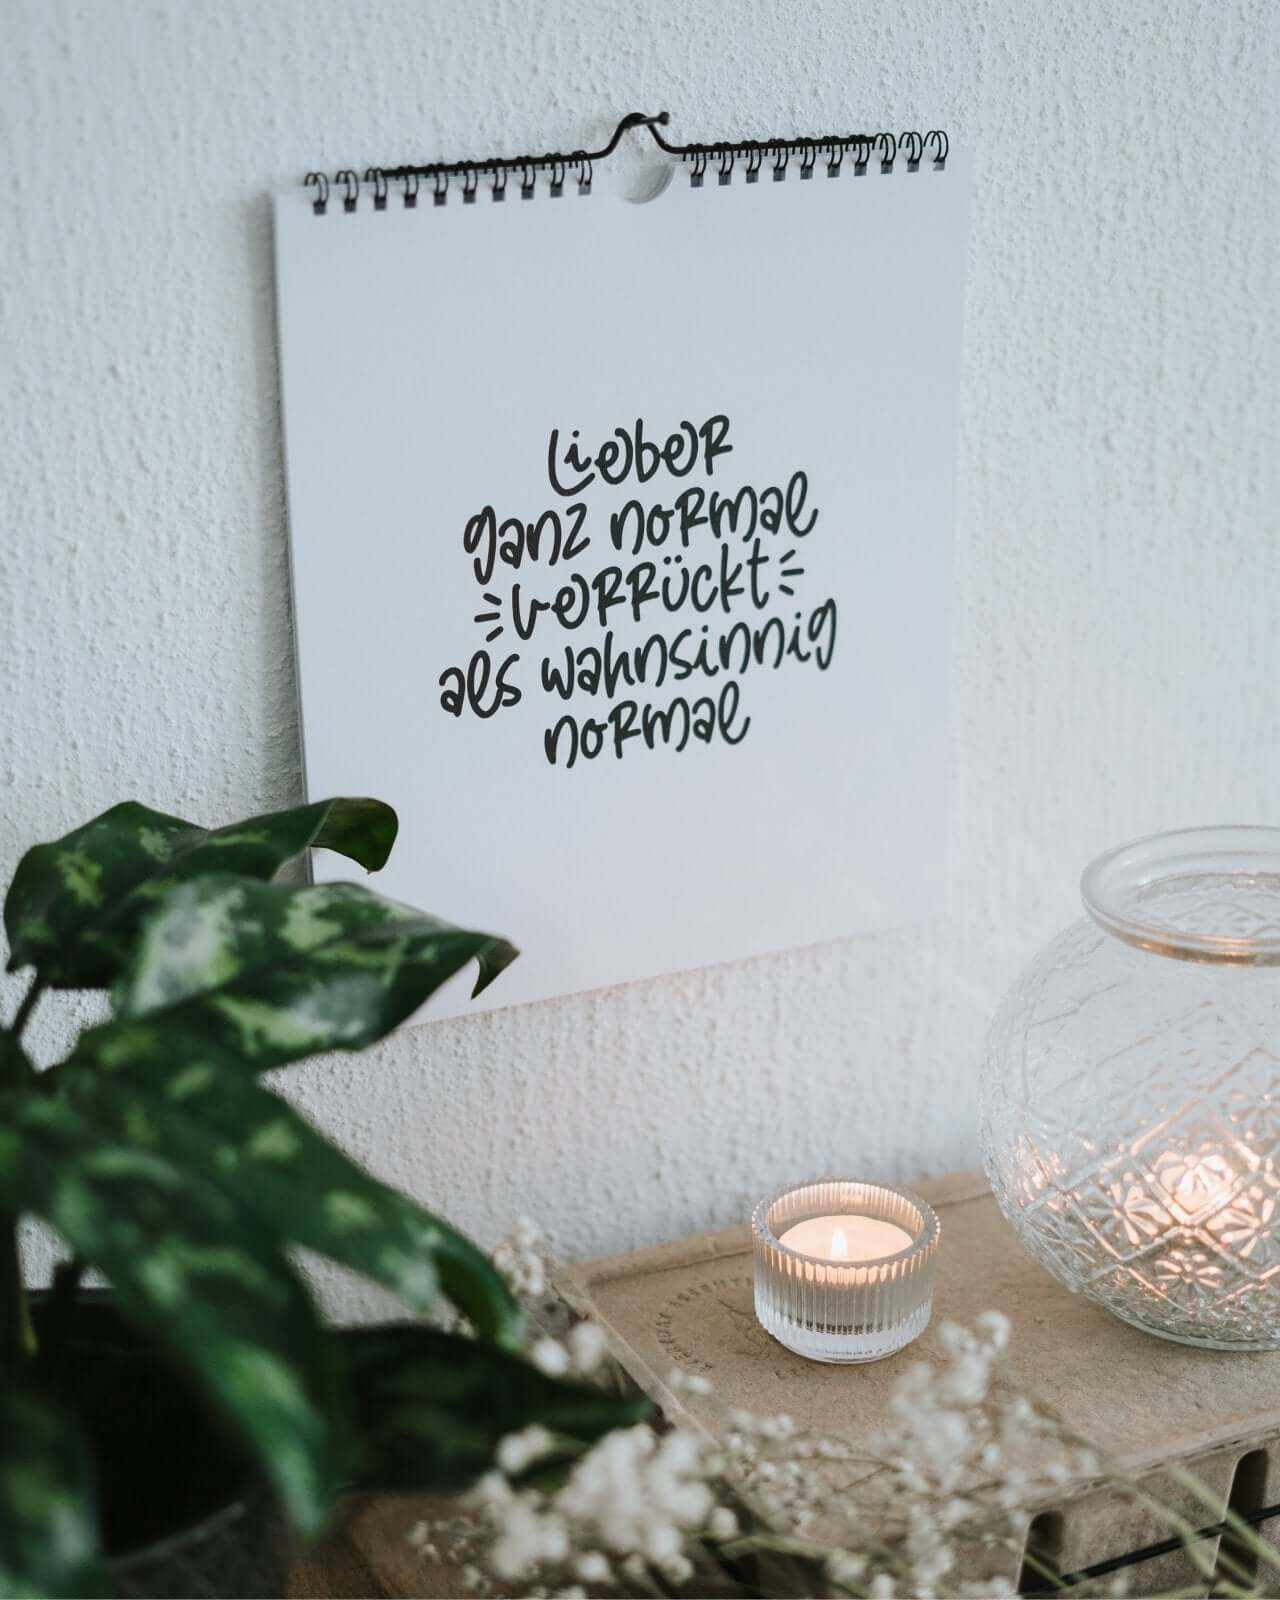 Lieber
ganz normal
verrückt
als wahnsinnig
normal